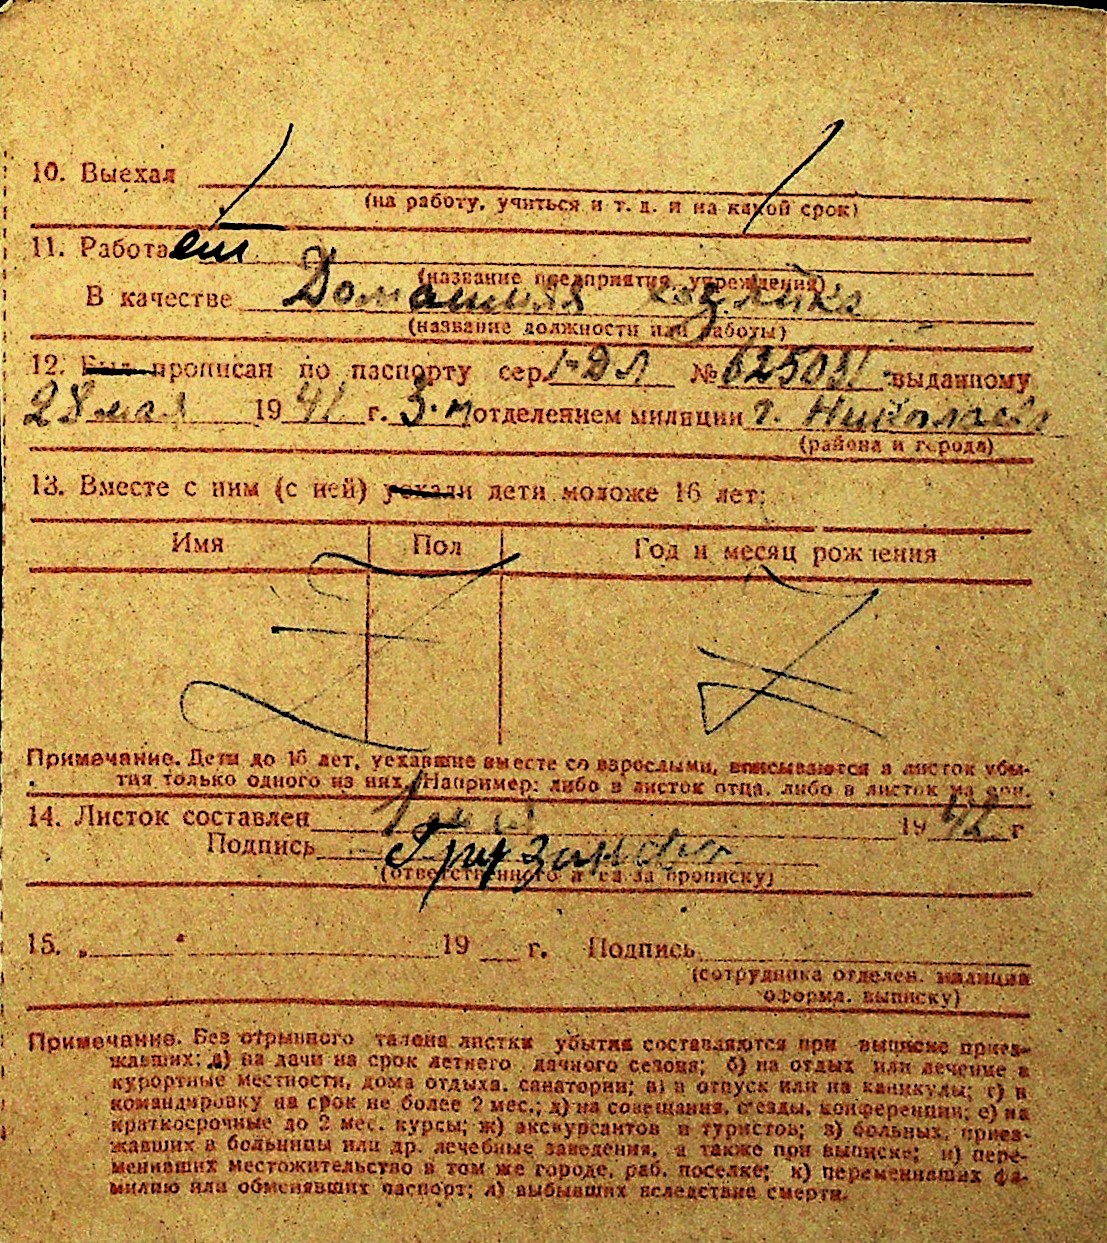 10. Выехал
(на работу, учиться и т. д. и на какой срок)
11. Работает
(название предприятия, учреждения)
В качестве Домашняя хозяйка
(название должности или работы)
12. Был прописан по паспорту сер. 1-ДЛ № 625031 выданному
28 мая 1941 г. 3-м отделением милиции г. Николаев
(района и города)
13. Вместе с ним (с ней) уехали дети моложе 16 лет:
Имя Пол Год и месяц рождения
Примечание. Дети до 16 лет, уехавшие вместе со взрослыми, вписываются в листок убы-
тия только одного из них (Например: либо в листок отца, либо в листок
14. Листок составлен 1 1942 г
Подпись
(ответственного за прописку)
15. „ “ 19 г. Подпись
(сотрудника отделен. милиции
оформл. выписку)
Примечание. Без отрывного талона листки убытия составляются при выписке приез-
жавших; а) на дачи на срок летнего дачного сезона; б) на отдых или лечение в
курортные местности, дома отдыха, санатории; в) в отпуск или на каникулы; г) в
командировку на срок не более 2 мес.; д) на совещания, с'езды, конференции; е) на
краткосрочные до 2 мес. курсы; ж) экскурсантов и туристов; з) больных, приез-
жавших в больницы или др. лечебные заведения, а также при выписке; и) пере-
менивших местожительство в том же городе, раб. поселке; к) переменивших фа-
милию или обменявших паспорт; л) выбывших вследствие смерти.